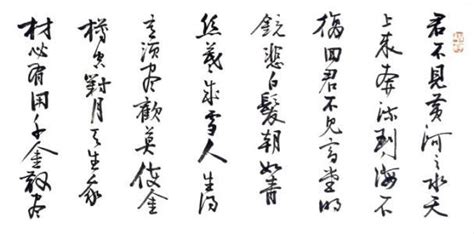 君不見黃河之水天
上來奔流到海不
復回君不見高堂明
鏡悲白髮朝如青
絲暮成雪人生得
意須盡歡莫使金
樽空對月天生我
材必有用千金散盡